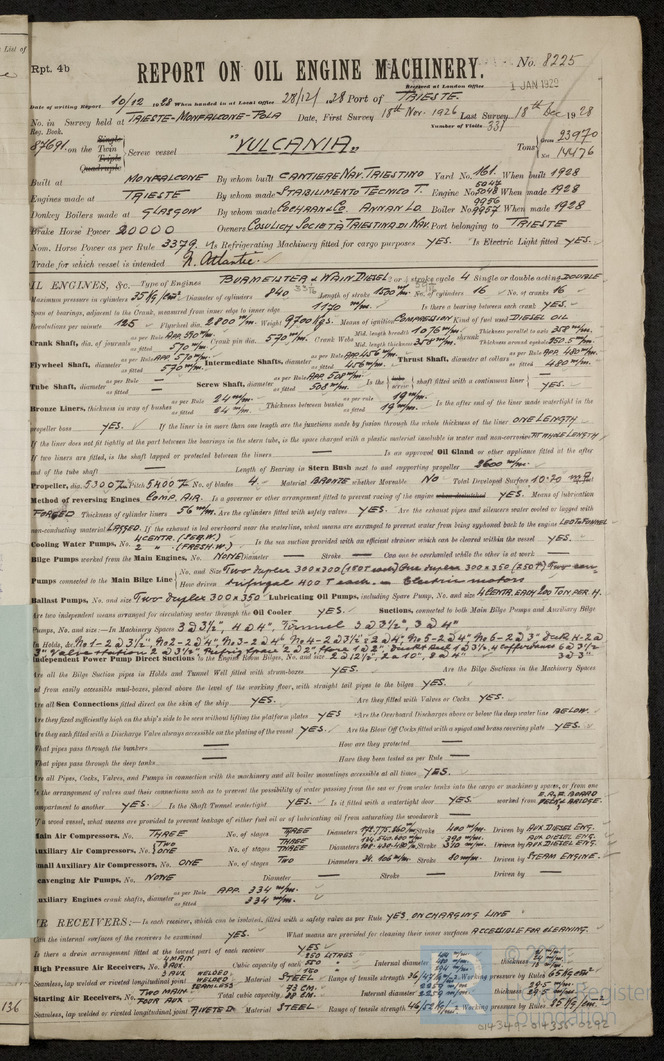 List of
Rpt. 4b
REPORT ON OIL ENGINE MACHINERY.
No. 8225
Received at London Office 1 JAN 1929
Date of writing Report 10/12 1928 When handed in at Local Office 28/12/ 28 Port of TRIESTE.
No. in Survey held at TRIESTE-MONFALCONE-POLA Date, First Survey 18th Nov. 1926 Last Survey 18th Dec 1928
Reg. Book. Number of Visits 331
87691 on the Single Twin Triple Quadruple Screw vessel "VULCANIA" Tons Gross 23970 Net 14476
Built at MONFALCONE By whom built CANTIERE NAV. TRIESTINO Yard No. 161. When built 1928
Engines made at TRIESTE By whom made STABILIMENTO TECNICO T. Engine No. 5047 5048 When made 1928
Donkey Boilers made at GLASGOW By whom made COCHRAN & Co. ANNAN LD. Boiler No. 9956 9957 When made 1928
Brake Horse Power 20000 Owners COSULICH SOCIETÀ TRIESTINA DI NAV. Port belonging to TRIESTE
Nom. Horse Power as per Rule 3379. Is Refrigerating Machinery fitted for cargo purposes YES. Is Electric Light fitted YES.
Trade for which vessel is intended N. Atlantic.
OIL ENGINES, &c.—Type of Engines BURMEISTER & WAIN DIESEL 2 or 4 stroke cycle 4 Single or double acting DOUBLE
Maximum pressure in cylinders 35 Kg/cm² Diameter of cylinders 840 Length of stroke 1500 m/m. No. of cylinders 16 No. of cranks 16
Span of bearings, adjacent to the Crank, measured from inner edge to inner edge 1170 m/m. Is there a bearing between each crank YES.
Revolutions per minute 125 Flywheel dia. 2800 m/m. Weight 9700 Kgs. Means of ignition COMPRESSION Kind of fuel used DIESEL OIL
Crank Shaft, dia. of journals as per Rule APP. 570 m/m. as fitted 570 m/m. Crank pin dia. 570 m/m. Crank Webs Mid. length breadth 1076 m/m. Mid. length thickness 358 m/m. shrunk Thickness parallel to axis 358 m/m. Thickness around eyehole 250.5 m/m.
Flywheel Shaft, diameter as per Rule APP. 570 m/m. as fitted 570 m/m. Intermediate Shafts, diameter as per Rule APP. 456 m/m. as fitted 456 m/m. Thrust Shaft, diameter at collars as per Rule APP. 480 m/m. as fitted 480 m/m.
Tube Shaft, diameter as per Rule — as fitted — Screw Shaft, diameter as per Rule APP. 508 m/m. as fitted 508 m/m. Is the tube screw shaft fitted with a continuous liner YES.
Bronze Liners, thickness in way of bushes as per Rule 24 m/m. as fitted 24 m/m. Thickness between bushes as per rule 19 m/m. as fitted 19 m/m. Is the after end of the liner made watertight in the
propeller boss YES. If the liner is in more than one length are the junctions made by fusion through the whole thickness of the liner ONE LENGTH
If the liner does not fit tightly at the part between the bearings in the stern tube, is the space charged with a plastic material insoluble in water and non-corrosive
If two liners are fitted, is the shaft lapped or protected between the liners — Is an approved Oil Gland or other appliance fitted at the after
end of the tube shaft — Length of Bearing in Stern Bush next to and supporting propeller 2600 m/m.
Propeller, dia. 5300 Pitch 5400 No. of blades 4. Material BRONZE whether Moveable NO Total Developed Surface 10.70
Method of reversing Engines COMP. AIR. Is a governor or other arrangement fitted to prevent racing of the engine when declutched YES. Means of lubrication
FORCED Thickness of cylinder liners 56 m/m. Are the cylinders fitted with safety valves YES. Are the exhaust pipes and silencers water cooled or lagged with
non-conducting material LAGGED. If the exhaust is led overboard near the waterline, what means are arranged to prevent water from being syphoned back to the engine LED TO FUNNEL
Cooling Water Pumps, No. 4 CENTR. (SEA W.) 2 " (FRESH W.) Is the sea suction provided with an efficient strainer which can be cleared within the vessel YES.
Bilge Pumps worked from the Main Engines, No. NONE Diameter — Stroke — Can one be overhauled while the other is at work —
Pumps connected to the Main Bilge Line No. and Size Two Duplex 300x300 One Duplex 300x350 (250 T)
How driven Electric motors
Ballast Pumps, No. and size Two Duplex 300x350 Lubricating Oil Pumps, including Spare Pump, No. and size 4 CENTR. EACH 200 TON PER H.
Are two independent means arranged for circulating water through the Oil Cooler YES. Suctions, connected to both Main Bilge Pumps and Auxiliary Bilge
Pumps, No. and size:—In Machinery Spaces
In Holds, &c.
Independent Power Pump Direct Suctions to the Engine Room Bilges, No. and size
Are all the Bilge Suction pipes in Holds and Tunnel Well fitted with strum-boxes YES. Are the Bilge Suctions in the Machinery Spaces
led from easily accessible mud-boxes, placed above the level of the working floor, with straight tail pipes to the bilges YES.
Are all Sea Connections fitted direct on the skin of the ship YES. Are they fitted with Valves or Cocks YES.
Are they fixed sufficiently high on the ship's side to be seen without lifting the platform plates YES Are the Overboard Discharges above or below the deep water line BELOW.
Are they each fitted with a Discharge Valve always accessible on the plating of the vessel YES. Are the Blow Off Cocks fitted with a spigot and brass covering plate YES.
What pipes pass through the bunkers — How are they protected —
What pipes pass through the deep tanks — Have they been tested as per Rule —
Are all Pipes, Cocks, Valves, and Pumps in connection with the machinery and all boiler mountings accessible at all times YES.
Is the arrangement of valves and their connections such as to prevent the possibility of water passing from the sea or from water tanks into the cargo or machinery spaces, or from one
compartment to another YES. Is the Shaft Tunnel watertight YES. Is it fitted with a watertight door YES. worked from
If a wood vessel, what means are provided to prevent leakage of either fuel oil or of lubricating oil from saturating the woodwork —
Main Air Compressors, No. THREE No. of stages THREE Diameters Stroke 400 m/m. Driven by AUX. DIESEL ENG.
Auxiliary Air Compressors, No. TWO ONE No. of stages THREE THREE Diameters Stroke Driven by AUX. DIESEL ENG. AUX. DIESEL ENG.
Small Auxiliary Air Compressors, No. ONE No. of stages TWO Diameters Stroke 80 m/m. Driven by STEAM ENGINE.
Scavenging Air Pumps, No. NONE Diameter — Stroke — Driven by —
Auxiliary Engines crank shafts, diameter as per Rule APP. 334 m/m. as fitted 334 m/m.
AIR RECEIVERS:—Is each receiver, which can be isolated, fitted with a safety valve as per Rule YES, ON CHARGING LINE
Can the internal surfaces of the receivers be examined YES. What means are provided for cleaning their inner surfaces ACCESSIBLE FOR CLEANING.
Is there a drain arrangement fitted at the lowest part of each receiver YES
High Pressure Air Receivers, No. 4 MAIN 3 AUX. Cubic capacity of each Internal diameter thickness
Seamless, lap welded or riveted longitudinal joint Material STEEL Range of tensile strength Working pressure by Rules 65 Kg/cm²
Starting Air Receivers, No. TWO MAIN FOUR AUX Total cubic capacity Internal diameter thickness
Seamless, lap welded or riveted longitudinal joint RIVETED Material STEEL Range of tensile strength Working pressure by Rules
136
Register
Foundation
014349-014355-0292